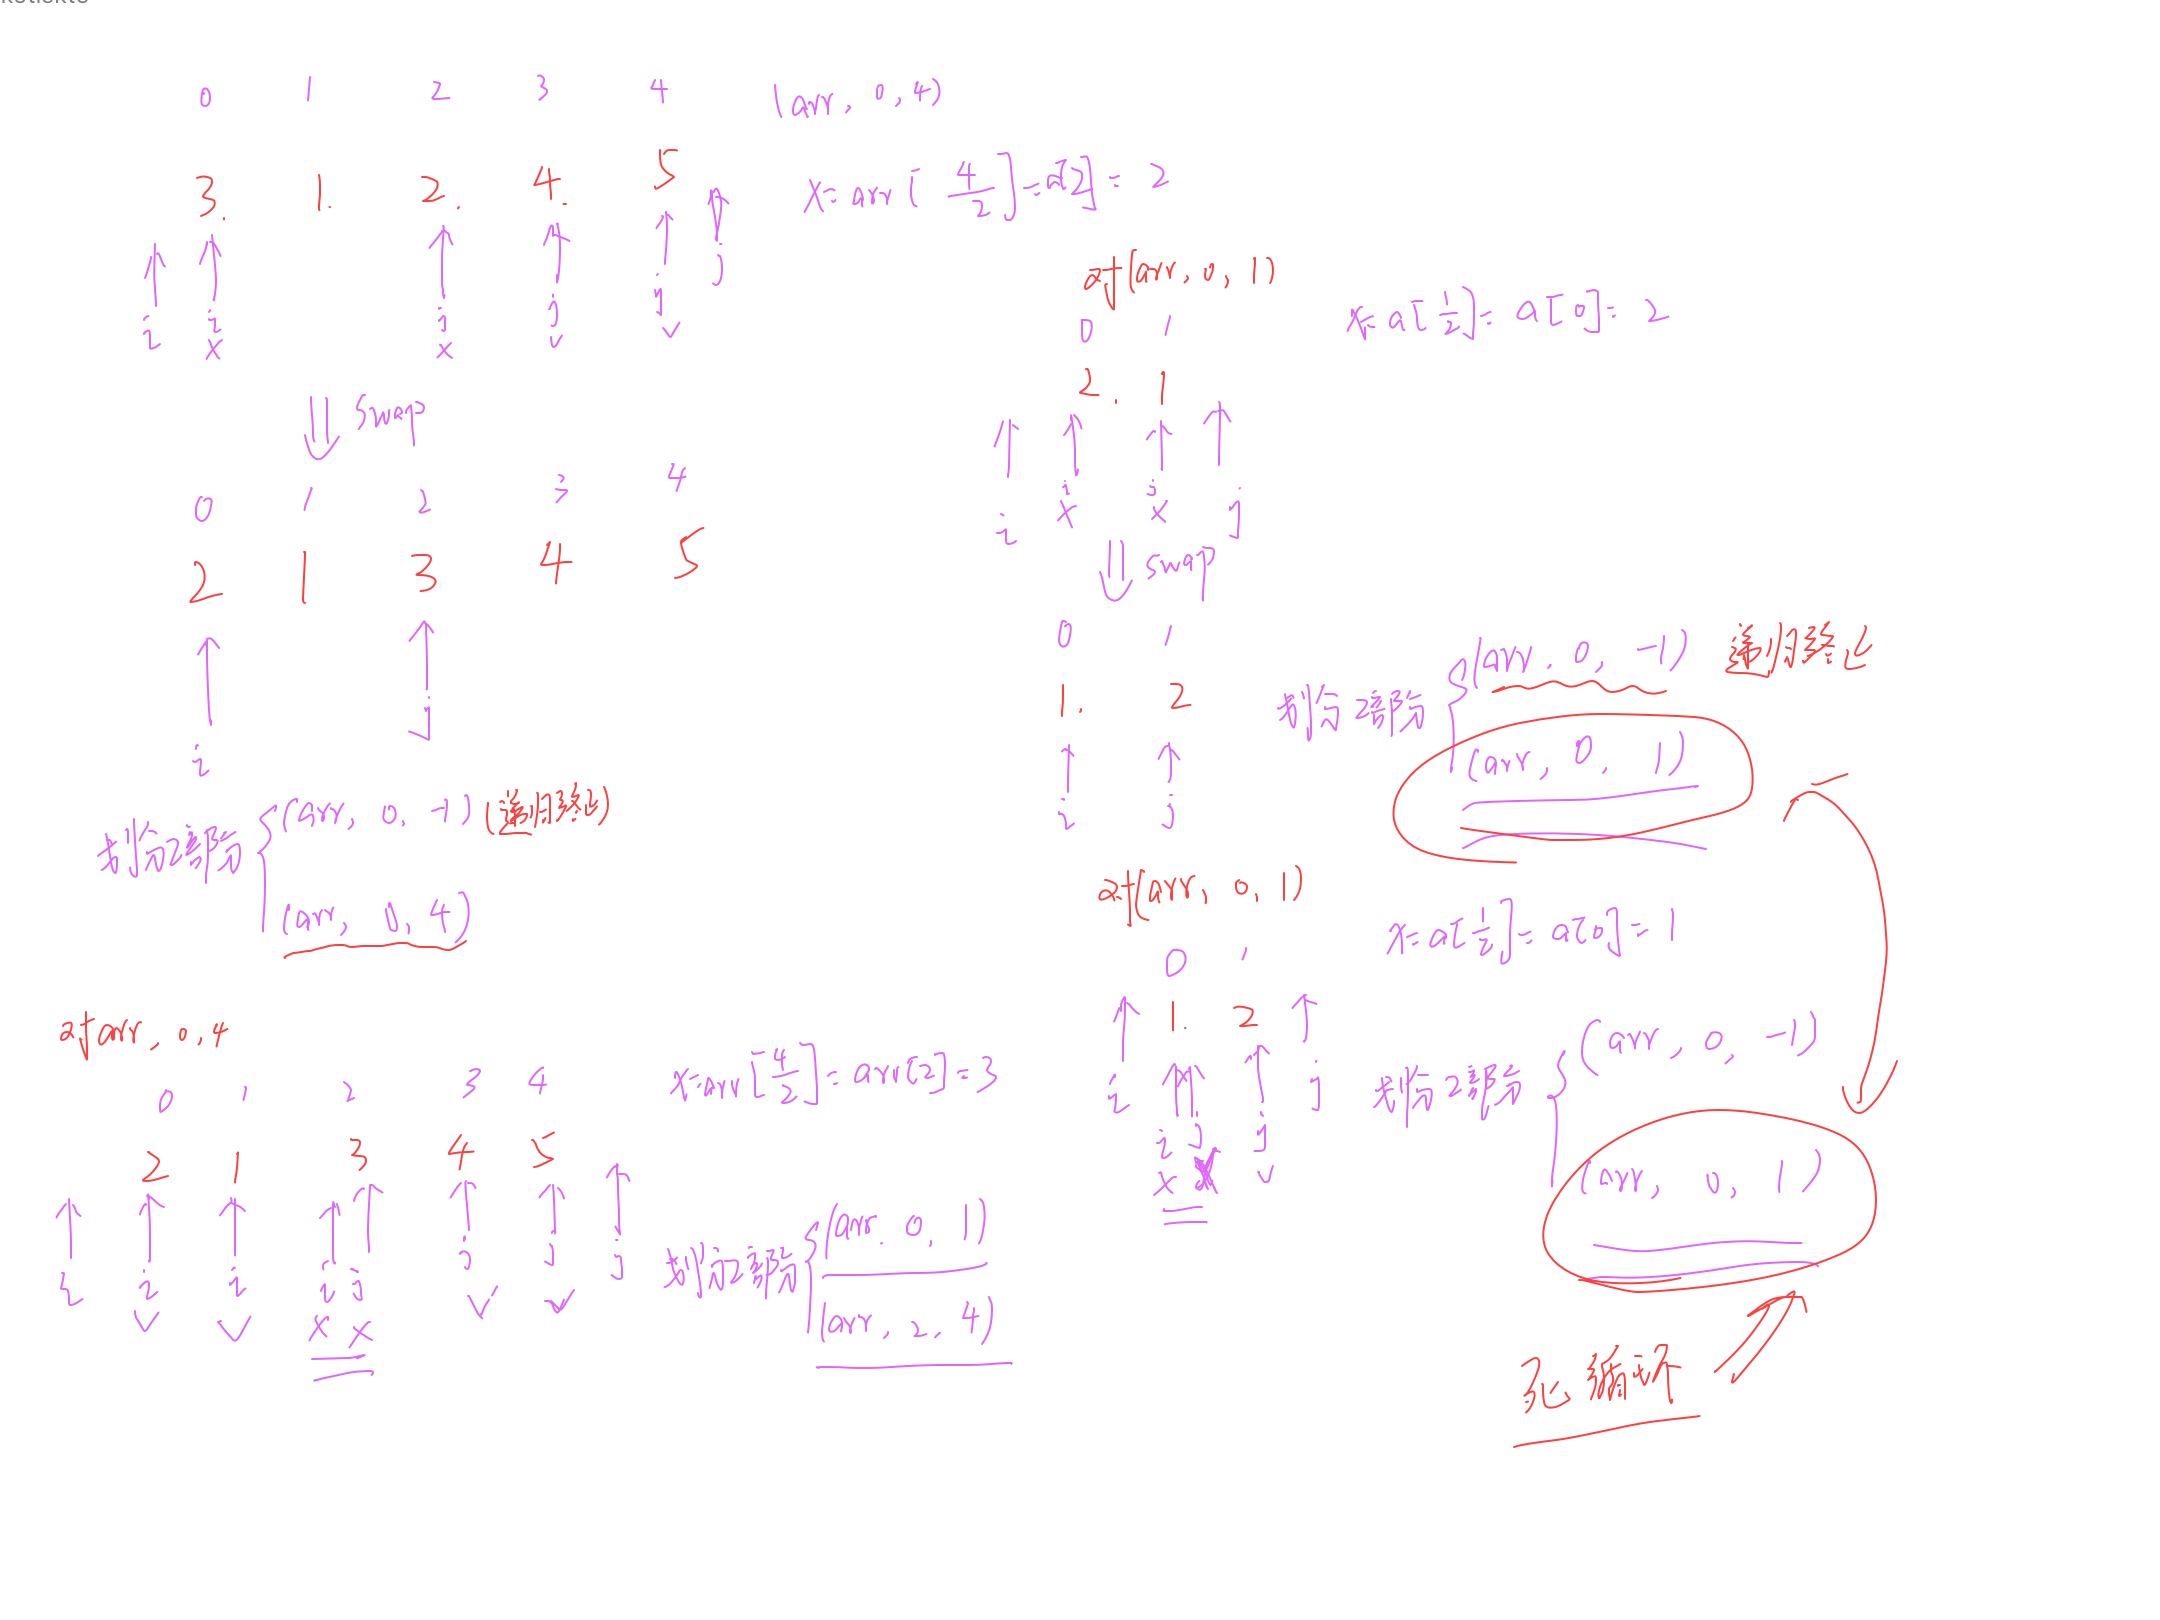 0 1 2 3 4 (arr, 0, 4)
3. 1. 2. 4. 5
x = arr[4/2] = a[2] = 2
i i j j j j
x x v v
⇓ swap
0 1 2 3 4
2 1 3 4 5
i j
划分2部分 { (arr, 0, -1) (递归终止)
(arr, 0, 4)
对arr, 0, 4
0 1 2 3 4
x = arr[4/2] = arr[2] = 3
2 1 3 4 5
i i i i j j j j
v v x x v v
划分2部分 { (arr. 0, 1)
(arr, 2, 4)
对(arr, 0, 1)
0 1
x = a[1/2] = a[0] = 2
2. 1
i i j j
x x
⇓ swap
0 1
1. 2
i j
划分2部分 { (arr. 0, -1) 递归终止
(arr, 0, 1)
对(arr, 0, 1)
x = a[1/2] = a[0] = 1
0 1
1. 2
i i j j j
x v
划分2部分 { (arr, 0, -1)
(arr, 0, 1)
死循环